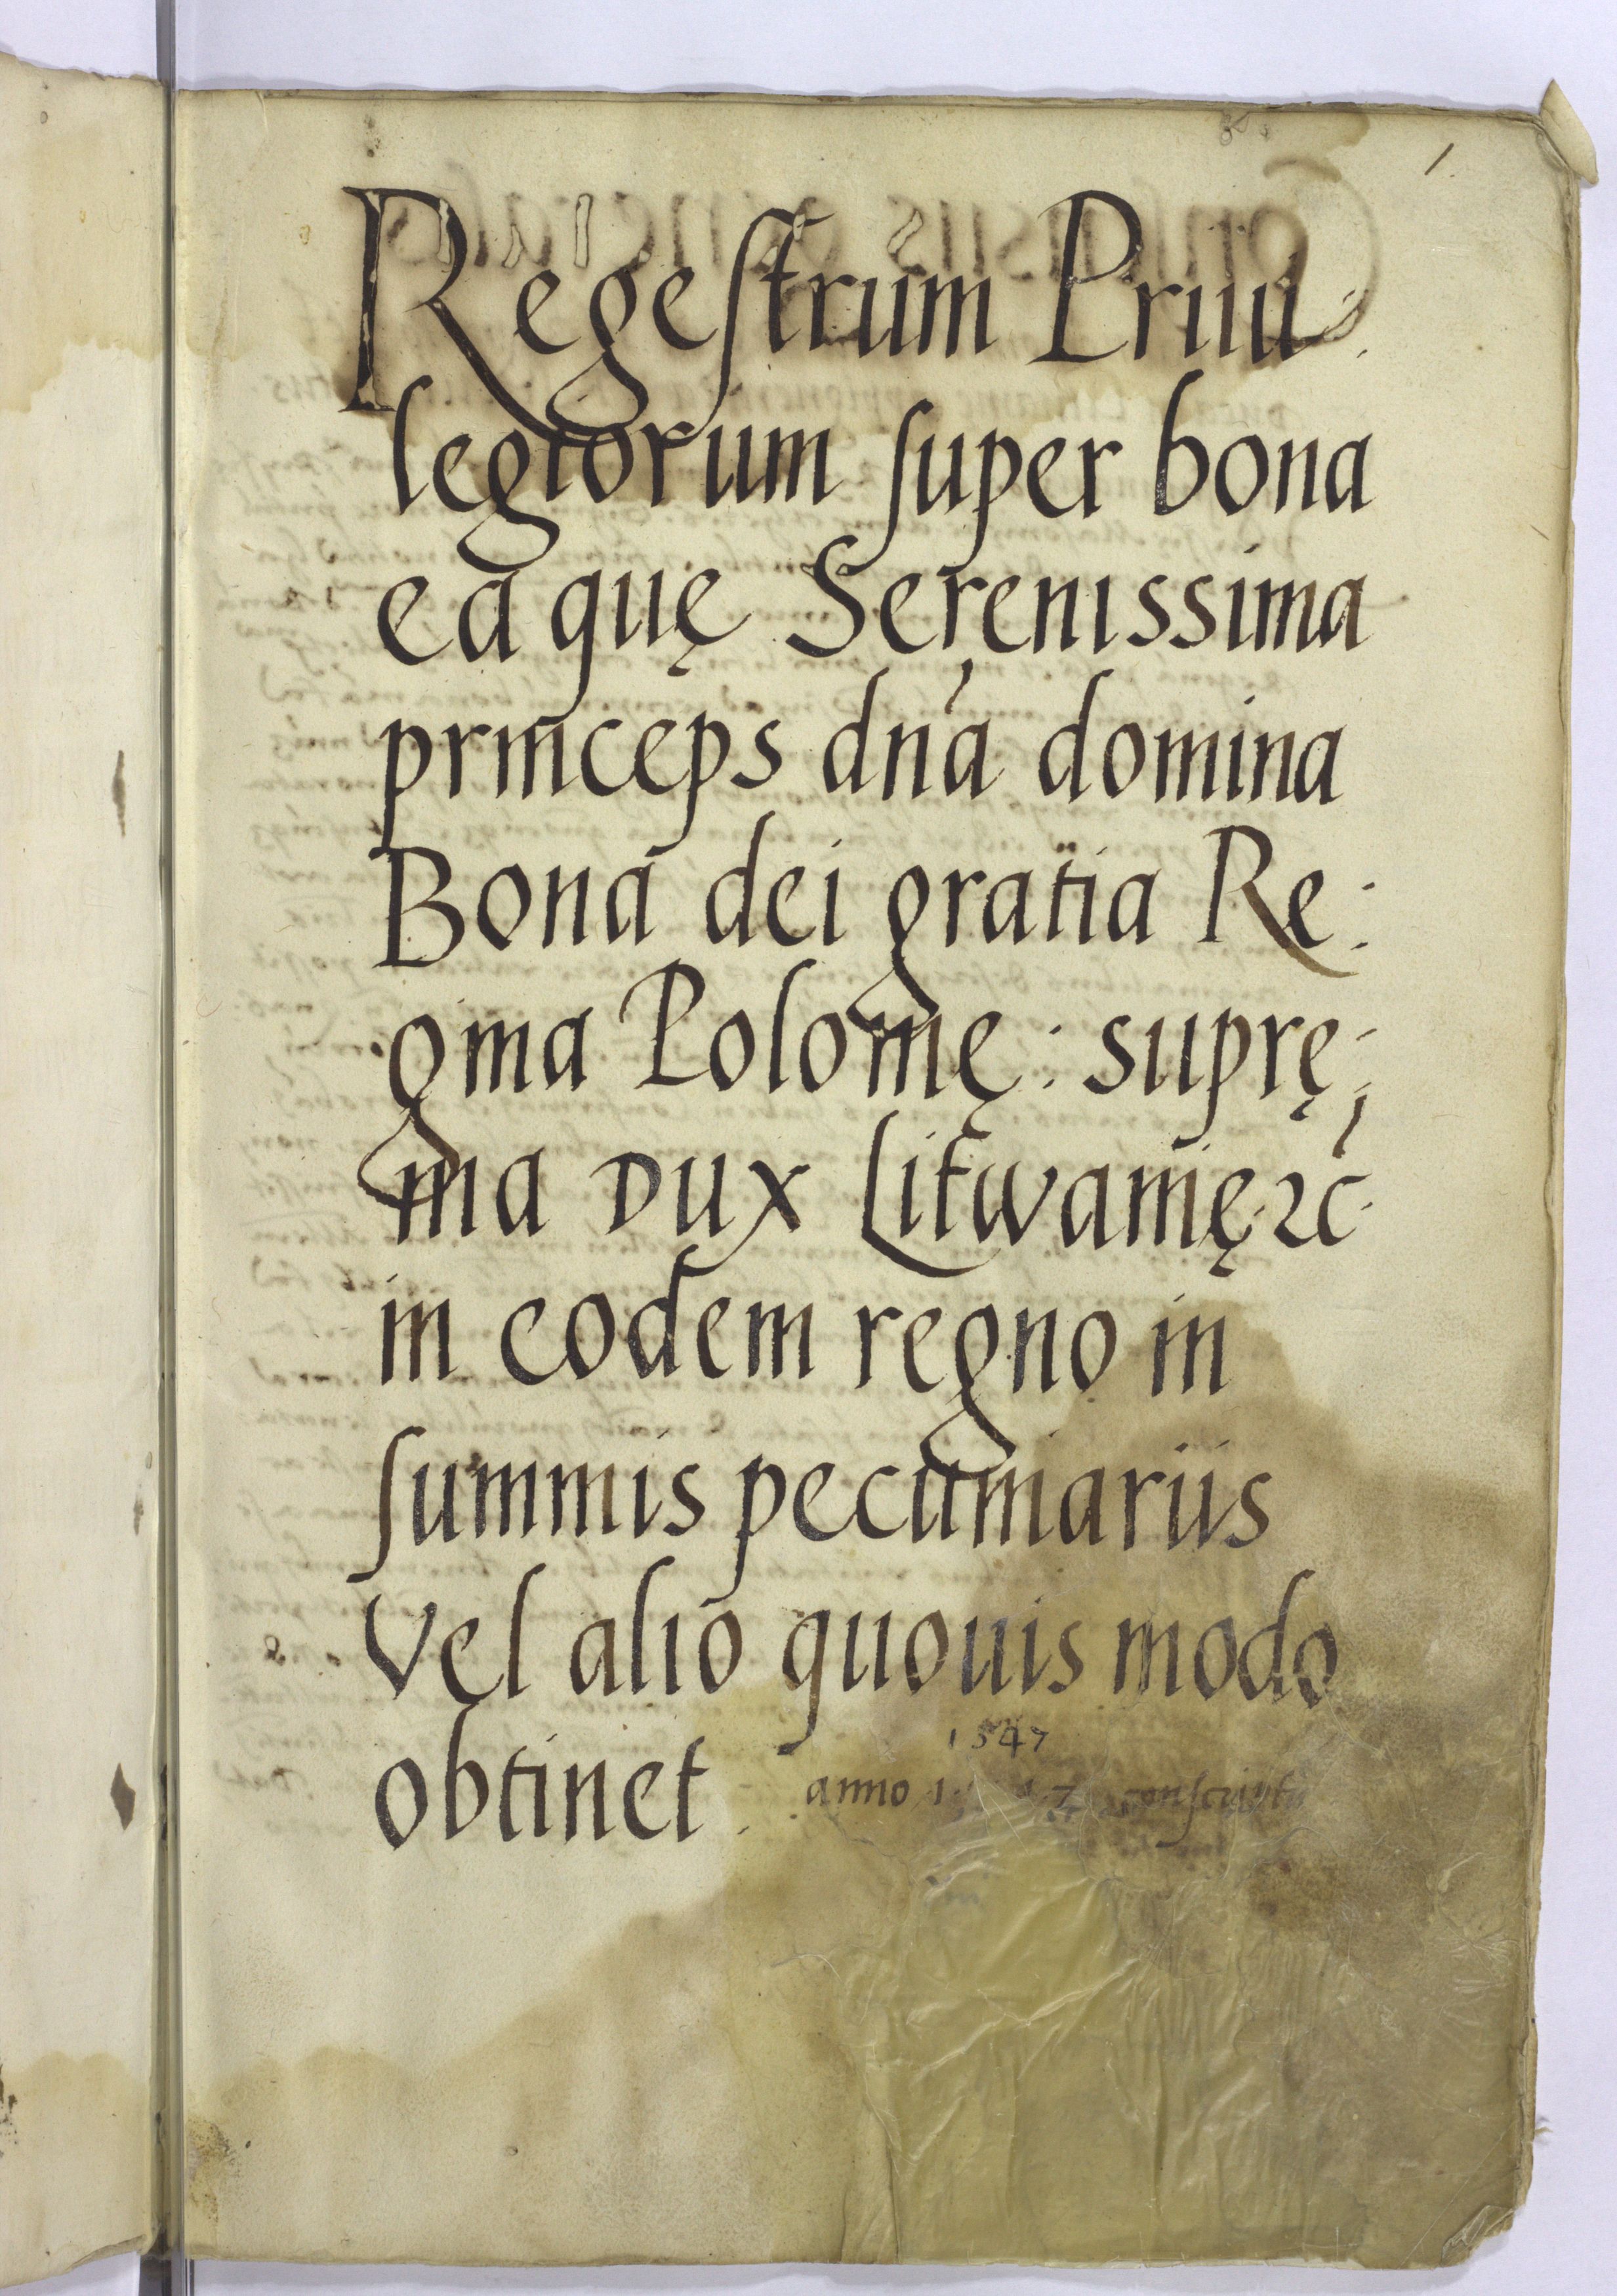 1.
Regestrum Priui
legiorum super bona
ea quę Serenissima
princeps dna domina
Bona dei gratia Re:
gina Polonię: suprę:
ma Dux Litwanię ⁊c
in eodem regno in
summis pecuniariis
vel alio quouis modo
obtinet.
1547
anno conscriptu